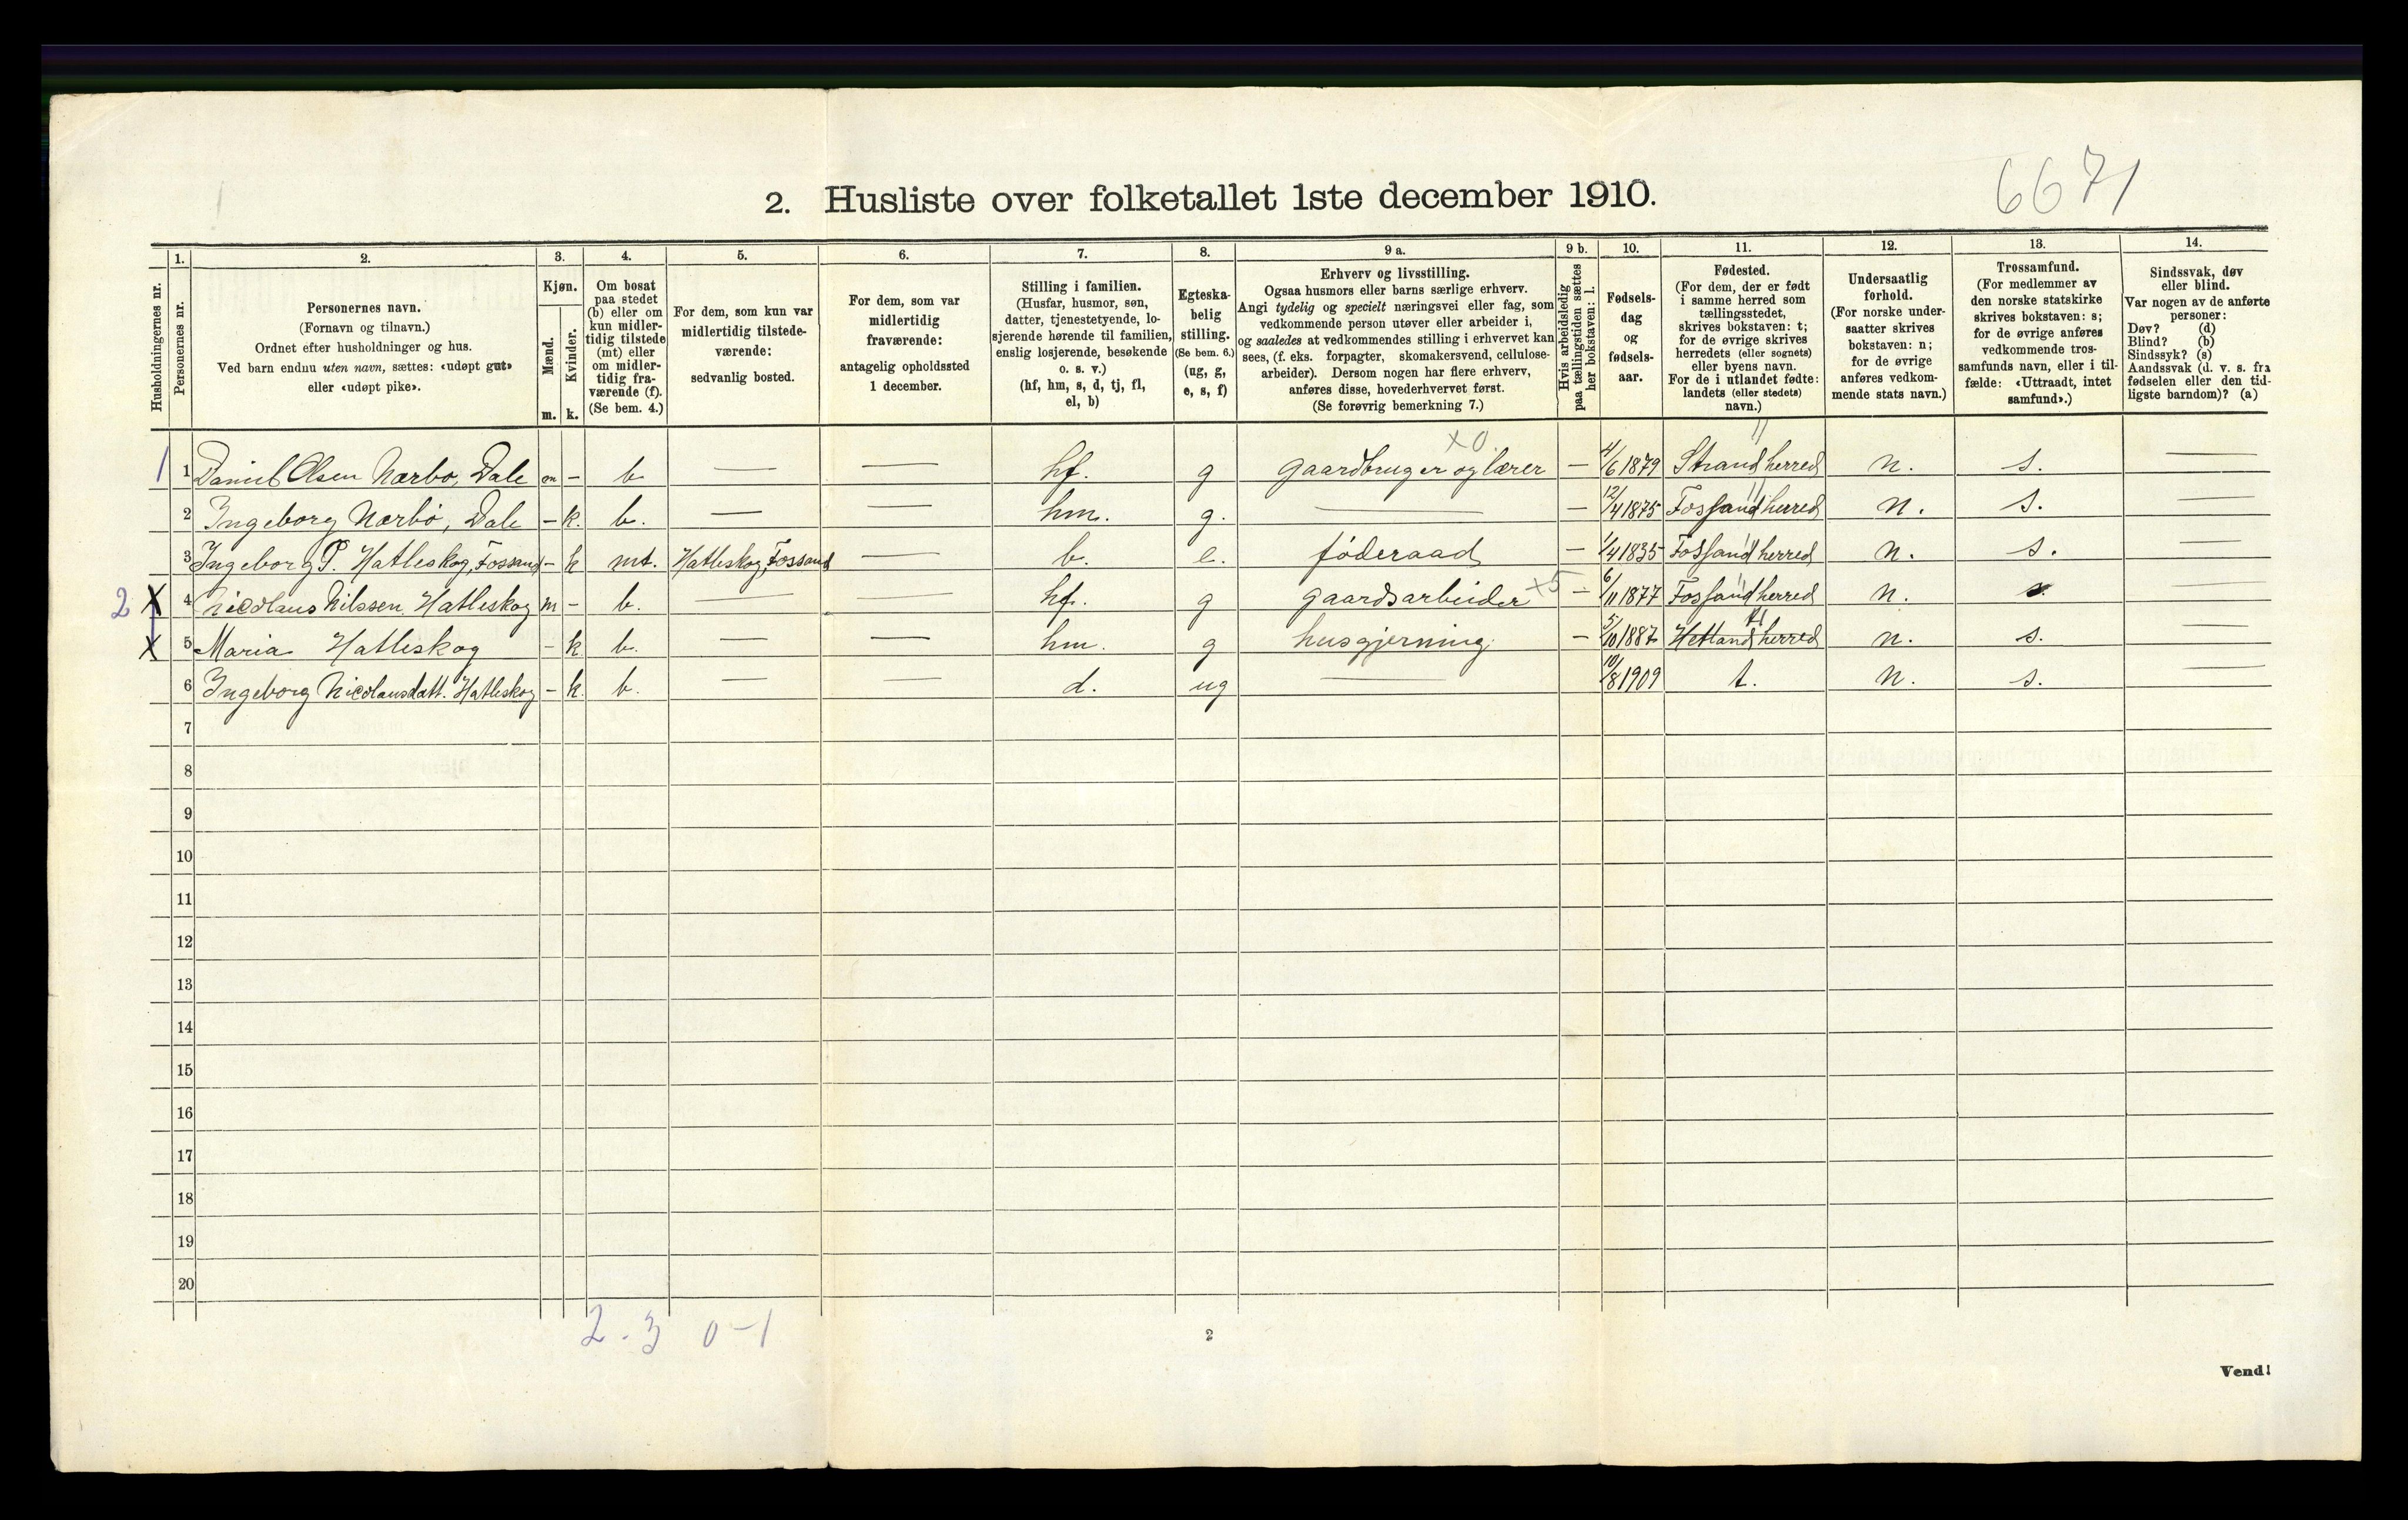 6671
2. Husliste over folketallet 1ste december 1910.
Husholdningernes nr.
1.
Personernes nr.
2.
Personernes navn.
(Fornavn og tilnavn.)
Ordnet efter husholdninger og hus.
Ved barn endnu uten navn, sættes: «udøpt gut»
eller «udøpt pike».
3.
Kjøn.
Mænd.
m.
Kvinder.
k.
4.
Om bosat
paa stedet
(b) eller om
kun midler-
tidig tilstede
(mt) eller
om midler-
tidig fra-
værende (f).
(Se bem. 4.)
5.
For dem, som kun var
midlertidig tilstede-
værende:
sedvanlig bosted.
6.
For dem, som var
midlertidig
fraværende:
antagelig opholdssted
1 december.
7.
Stilling i familien.
(Husfar, husmor, søn,
datter, tjenestetyende, lo-
sjerende hørende til familien,
enslig losjerende, besøkende
o. s. v.)
(hf, hm, s, d, tj, fl,
el, b)
8.
Egteska-
belig
stilling.
(Se bem. 6.)
(ug, g,
e, s, f)
9 a.
Erhverv og livsstilling.
Ogsaa husmors eller barns særlige erhverv.
Angi tydelig og specielt næringsvei eller fag, som
vedkommende person utøver eller arbeider i,
og saaledes at vedkommendes stilling i erhvervet kan
sees, (f. eks. forpagter, skomakersvend, cellulose-
arbeider). Dersom nogen har flere erhverv,
anføres disse, hovederhvervet først.
(Se forøvrig bemerkning 7.)
9 b.
Hvis arbeidsledig
paa tællingstiden sættes
her bokstaven: l.
10.
Fødsels-
dag
og
fødsels-
aar.
11.
Fødested.
(For dem, der er født
i samme herred som
tællingsstedet,
skrives bokstaven: t;
for de øvrige skrives
herredets (eller sognets)
eller byens navn.
For de i utlandet fødte:
landets (eller stedets)
navn.)
12.
Undersaatlig
forhold.
(For norske under-
saatter skrives
bokstaven: n;
for de øvrige
anføres vedkom-
mende stats navn.)
13.
Trossamfund.
(For medlemmer av
den norske statskirke
skrives bokstaven: s;
for de øvrige anføres
vedkommende tros-
samfunds navn, eller i til-
fælde: «Uttraadt, intet
samfund».)
14.
Sindssvak, døv
eller blind.
Var nogen av de anførte
personer:
Døv? (d)
Blind? (b)
Sindssyk? (s)
Aandssvak (d. v. s. fra
fødselen eller den tid-
ligste barndom)? (a)
x0
1 1 Daniel Olsen Nærbø, Dale m – b — — hf. g gaardbruger og lærer – 4/6 1879 Strand herred n. s. —
2 Ingeborg Nærbø, Dale – k. b. — — hm. g. — – 12/4 1875 Fossand herred n. s. —
3 Ingeborg P. Hatleskog, Fossand – k mt. Hatleskog, Fossand — b. e. føderaad – 1/4 1835 Fossand herred n. s. —
2 X 4 Nicolaus Nilssen Hatleskog m – b. — — hf. g gaardsarbeider x5 – 6/11 1877 Fossand herred n. s. —
X 5 Maria Hatleskog – k b. — — hm. g husgjerning – 5/10 1887 Hetland herred n. s. —
6 Ingeborg Nicolausdatt. Hatleskog – k. b. — — d. ug — 10/8 1909 t. n. s. —
7
8
9
10
11
12
13
14
15
16
17
18
19
20
2 - 3 0 - 1
2
Vend!